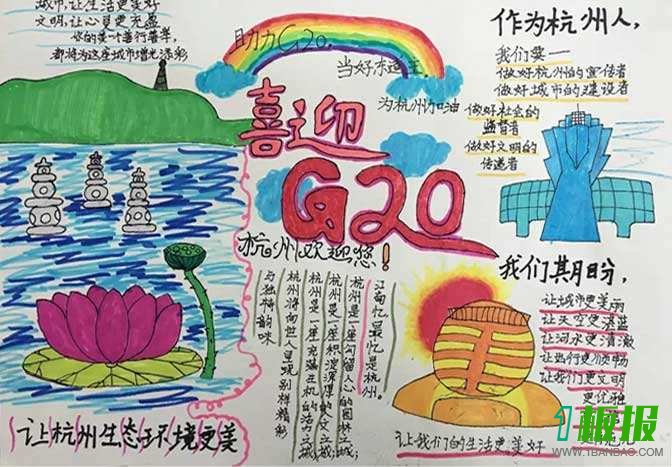 城市,让生活更美好
文明,让心更充盈
你的每一善行善举,
都将为这座城市增光添彩
助力G20,
当好东道主,
为杭州加油
喜迎
G20
杭州欢迎您!
作为杭州人,
我们要一
做好杭州的宣传者
做好城市的建设者
做好社会的
监督者
做好文明的
传递者
江南忆,最忆是杭州。
杭州是一座勾留人心的园林之城;
杭州是一座积淀深厚的人文之城;
杭州是一座充满生机的活力之城;
杭州将向世人呈现别样精彩
与独特韵味
我们期盼,
让城市更美丽
让天空更湛蓝
让河水更清澈
让出行更顺畅
让我们更文明
更优雅
让我们的生活更美好
让杭州生态环境更美
1板报
WWW.1BANBAO.COM